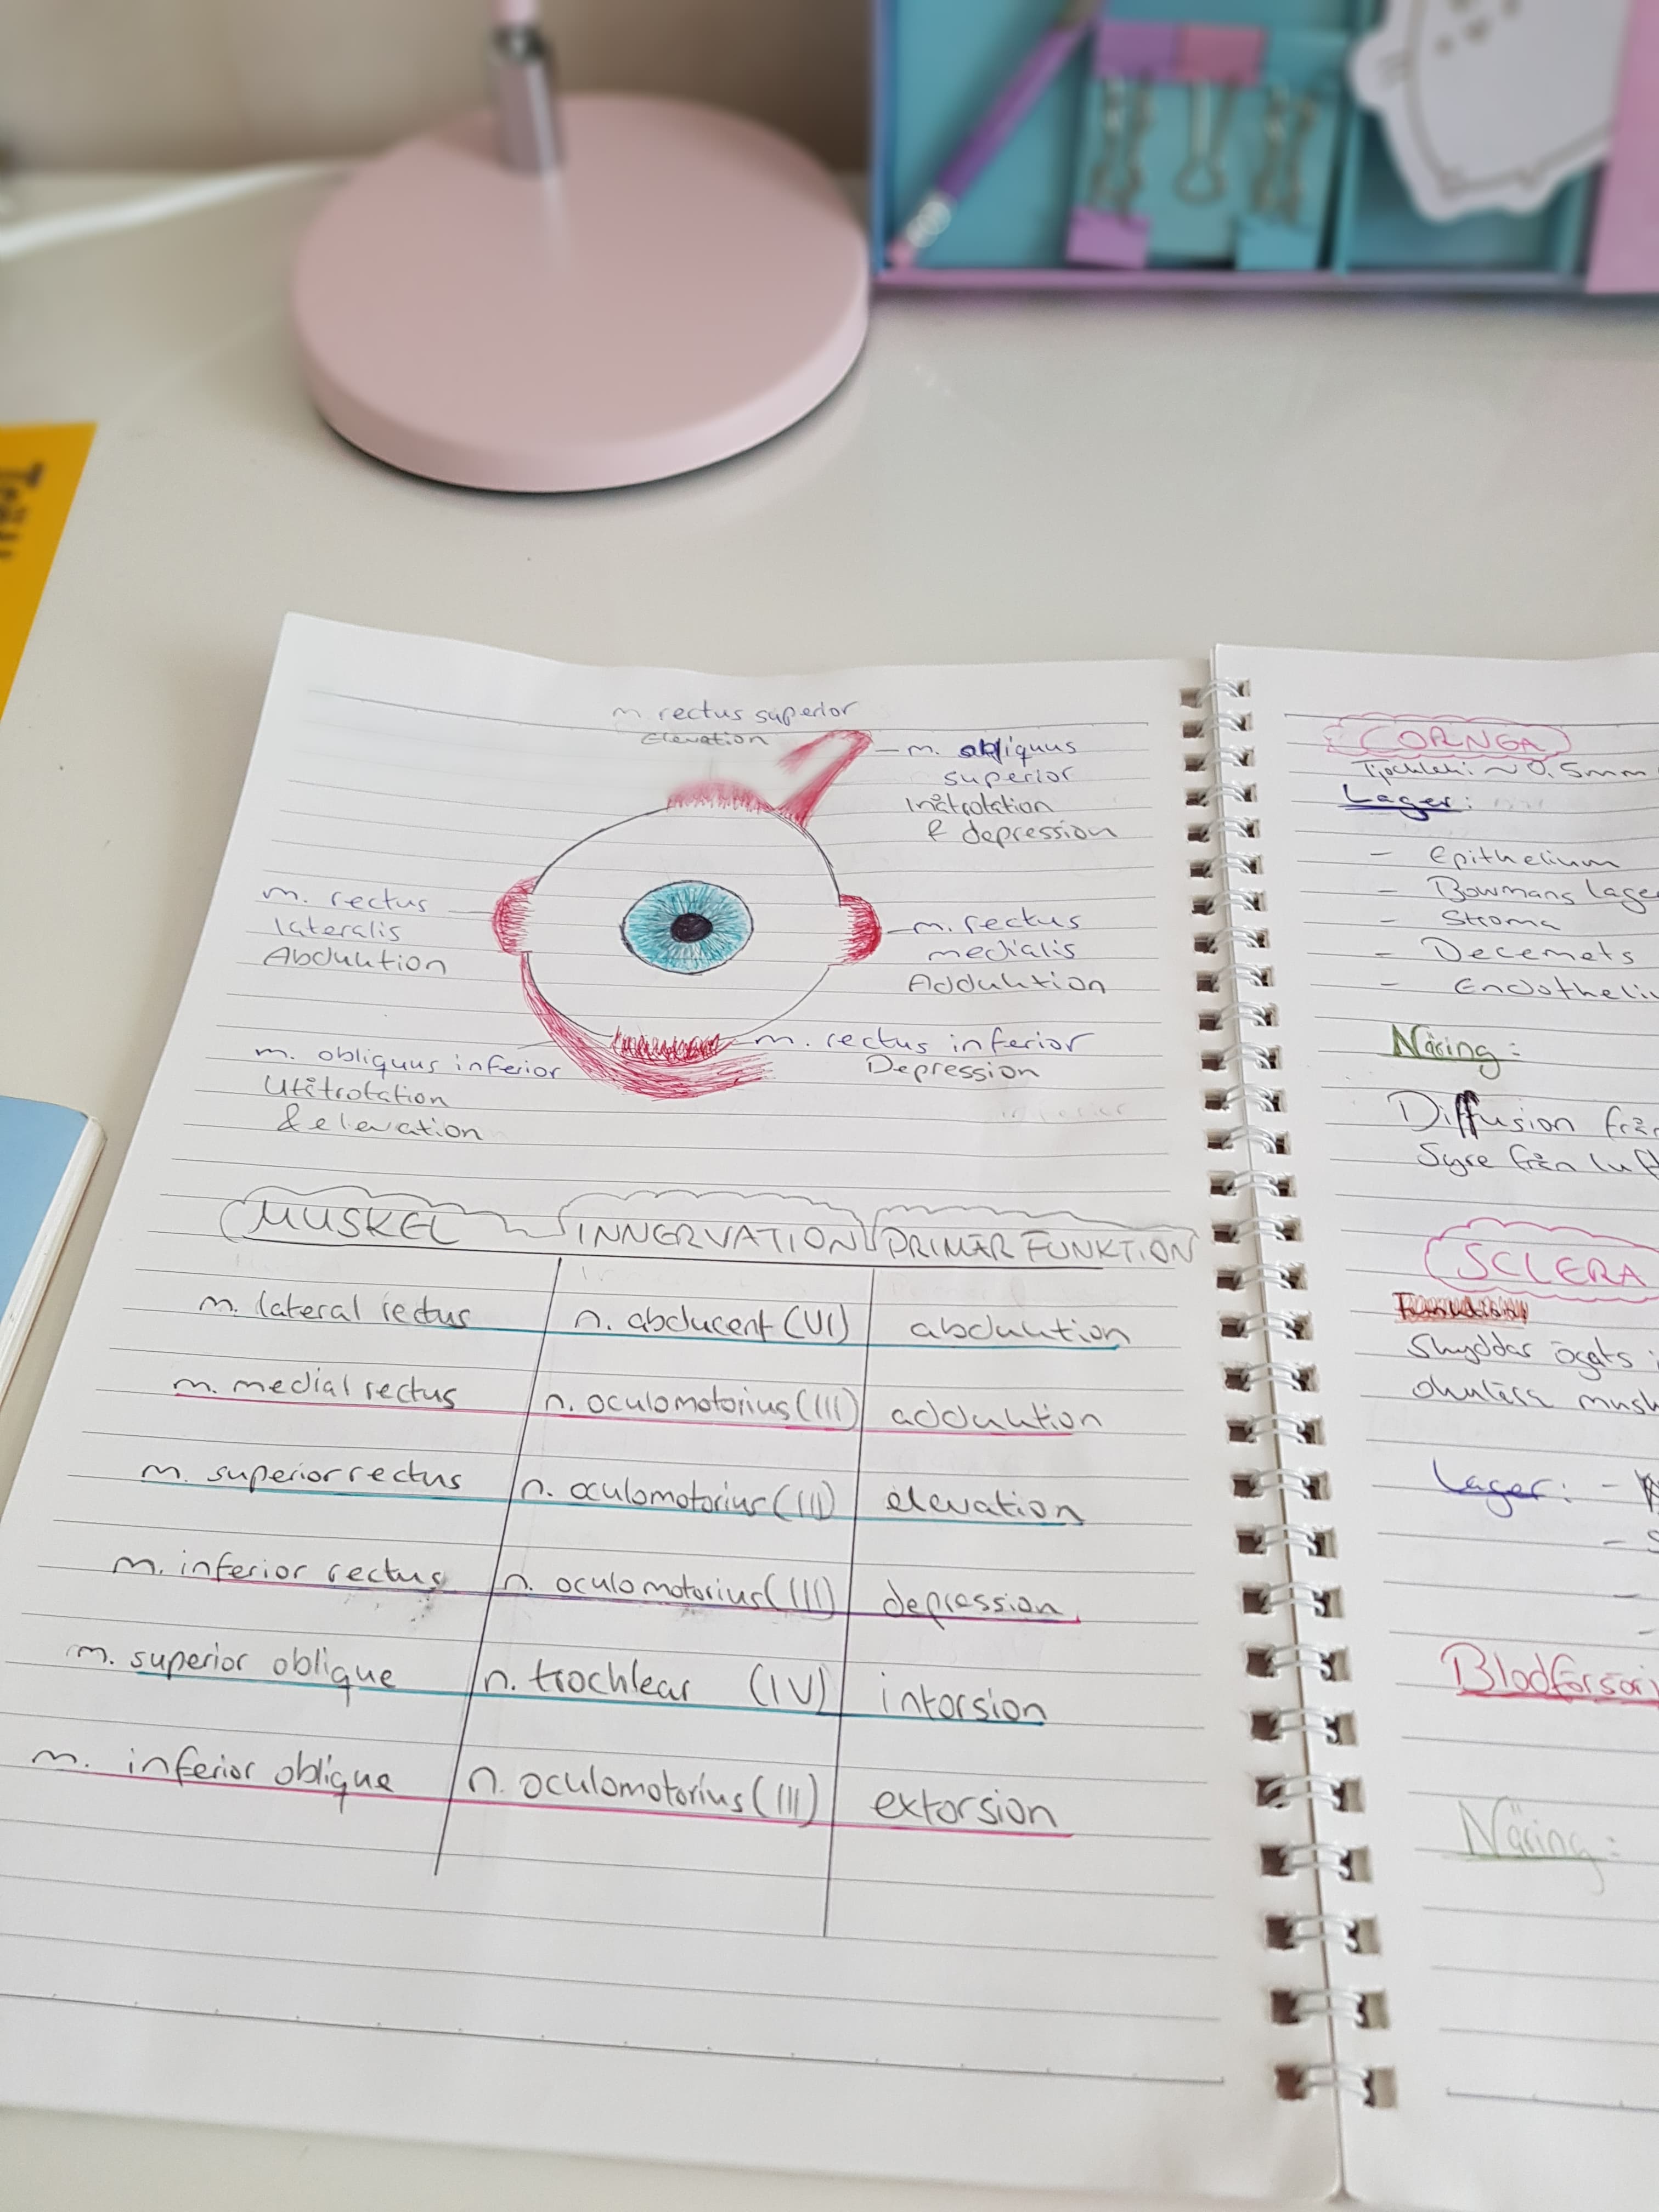 m. rectus superior
Elevation
m. obliquus
superior
Inåtrotation
& depression
m. rectus
lateralis
Abduktion
m. rectus
medialis
Adduktion
m. obliquus inferior
Utåtrotation
& elevation
m. rectus inferior
Depression
MUSKEL INNERVATION PRIMÄR FUNKTION
m. lateral rectus n. abducent (VI) abduktion
m. medial rectus n. oculomotorius (III) adduktion
m. superior rectus n. oculomotorius (III) elevation
m. inferior rectus n. oculomotorius (III) depression
m. superior oblique n. trochlear (IV) intorsion
m. inferior oblique n. oculomotorius (III) extorsion
CORNEA
Tjocklek: ~0.5mm
Lager:
- Epithelium
- Bowmans lager
- Stroma
- Decemets
- Endotheliu
Näring:
Diffusion från
Syre från luft
SCLERA
Skyddar ögats i
okulära musk
Lager: -
- S
-
-
Blodförsörj
Näring: